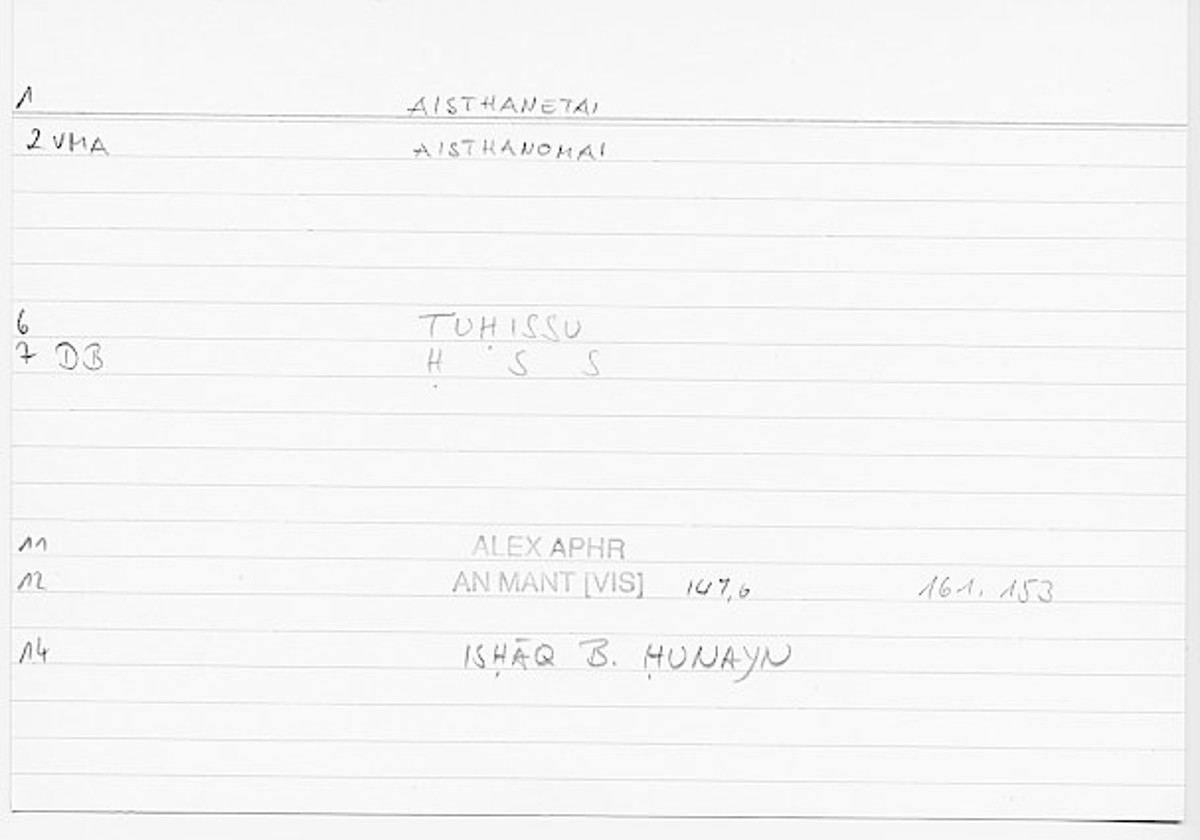 1 AISTHANETAI
2 VMA AISTHANOMAI
6 TUḤISSU
7 DB Ḥ S S
11 ALEX APHR
12 AN MANT [VIS] 147,6 161. 153
14 ISḤĀQ B. ḤUNAYN